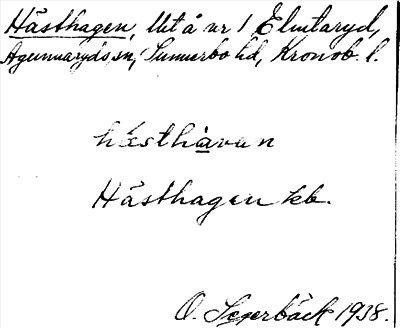 Hästhagen, lht å nr 1 Elmtaryd,
Agunnaryds sn, Sunnerbo hd, Kronob. l.
hästhàvan
Hästhagen kb.
O. Segerbäck 1938.